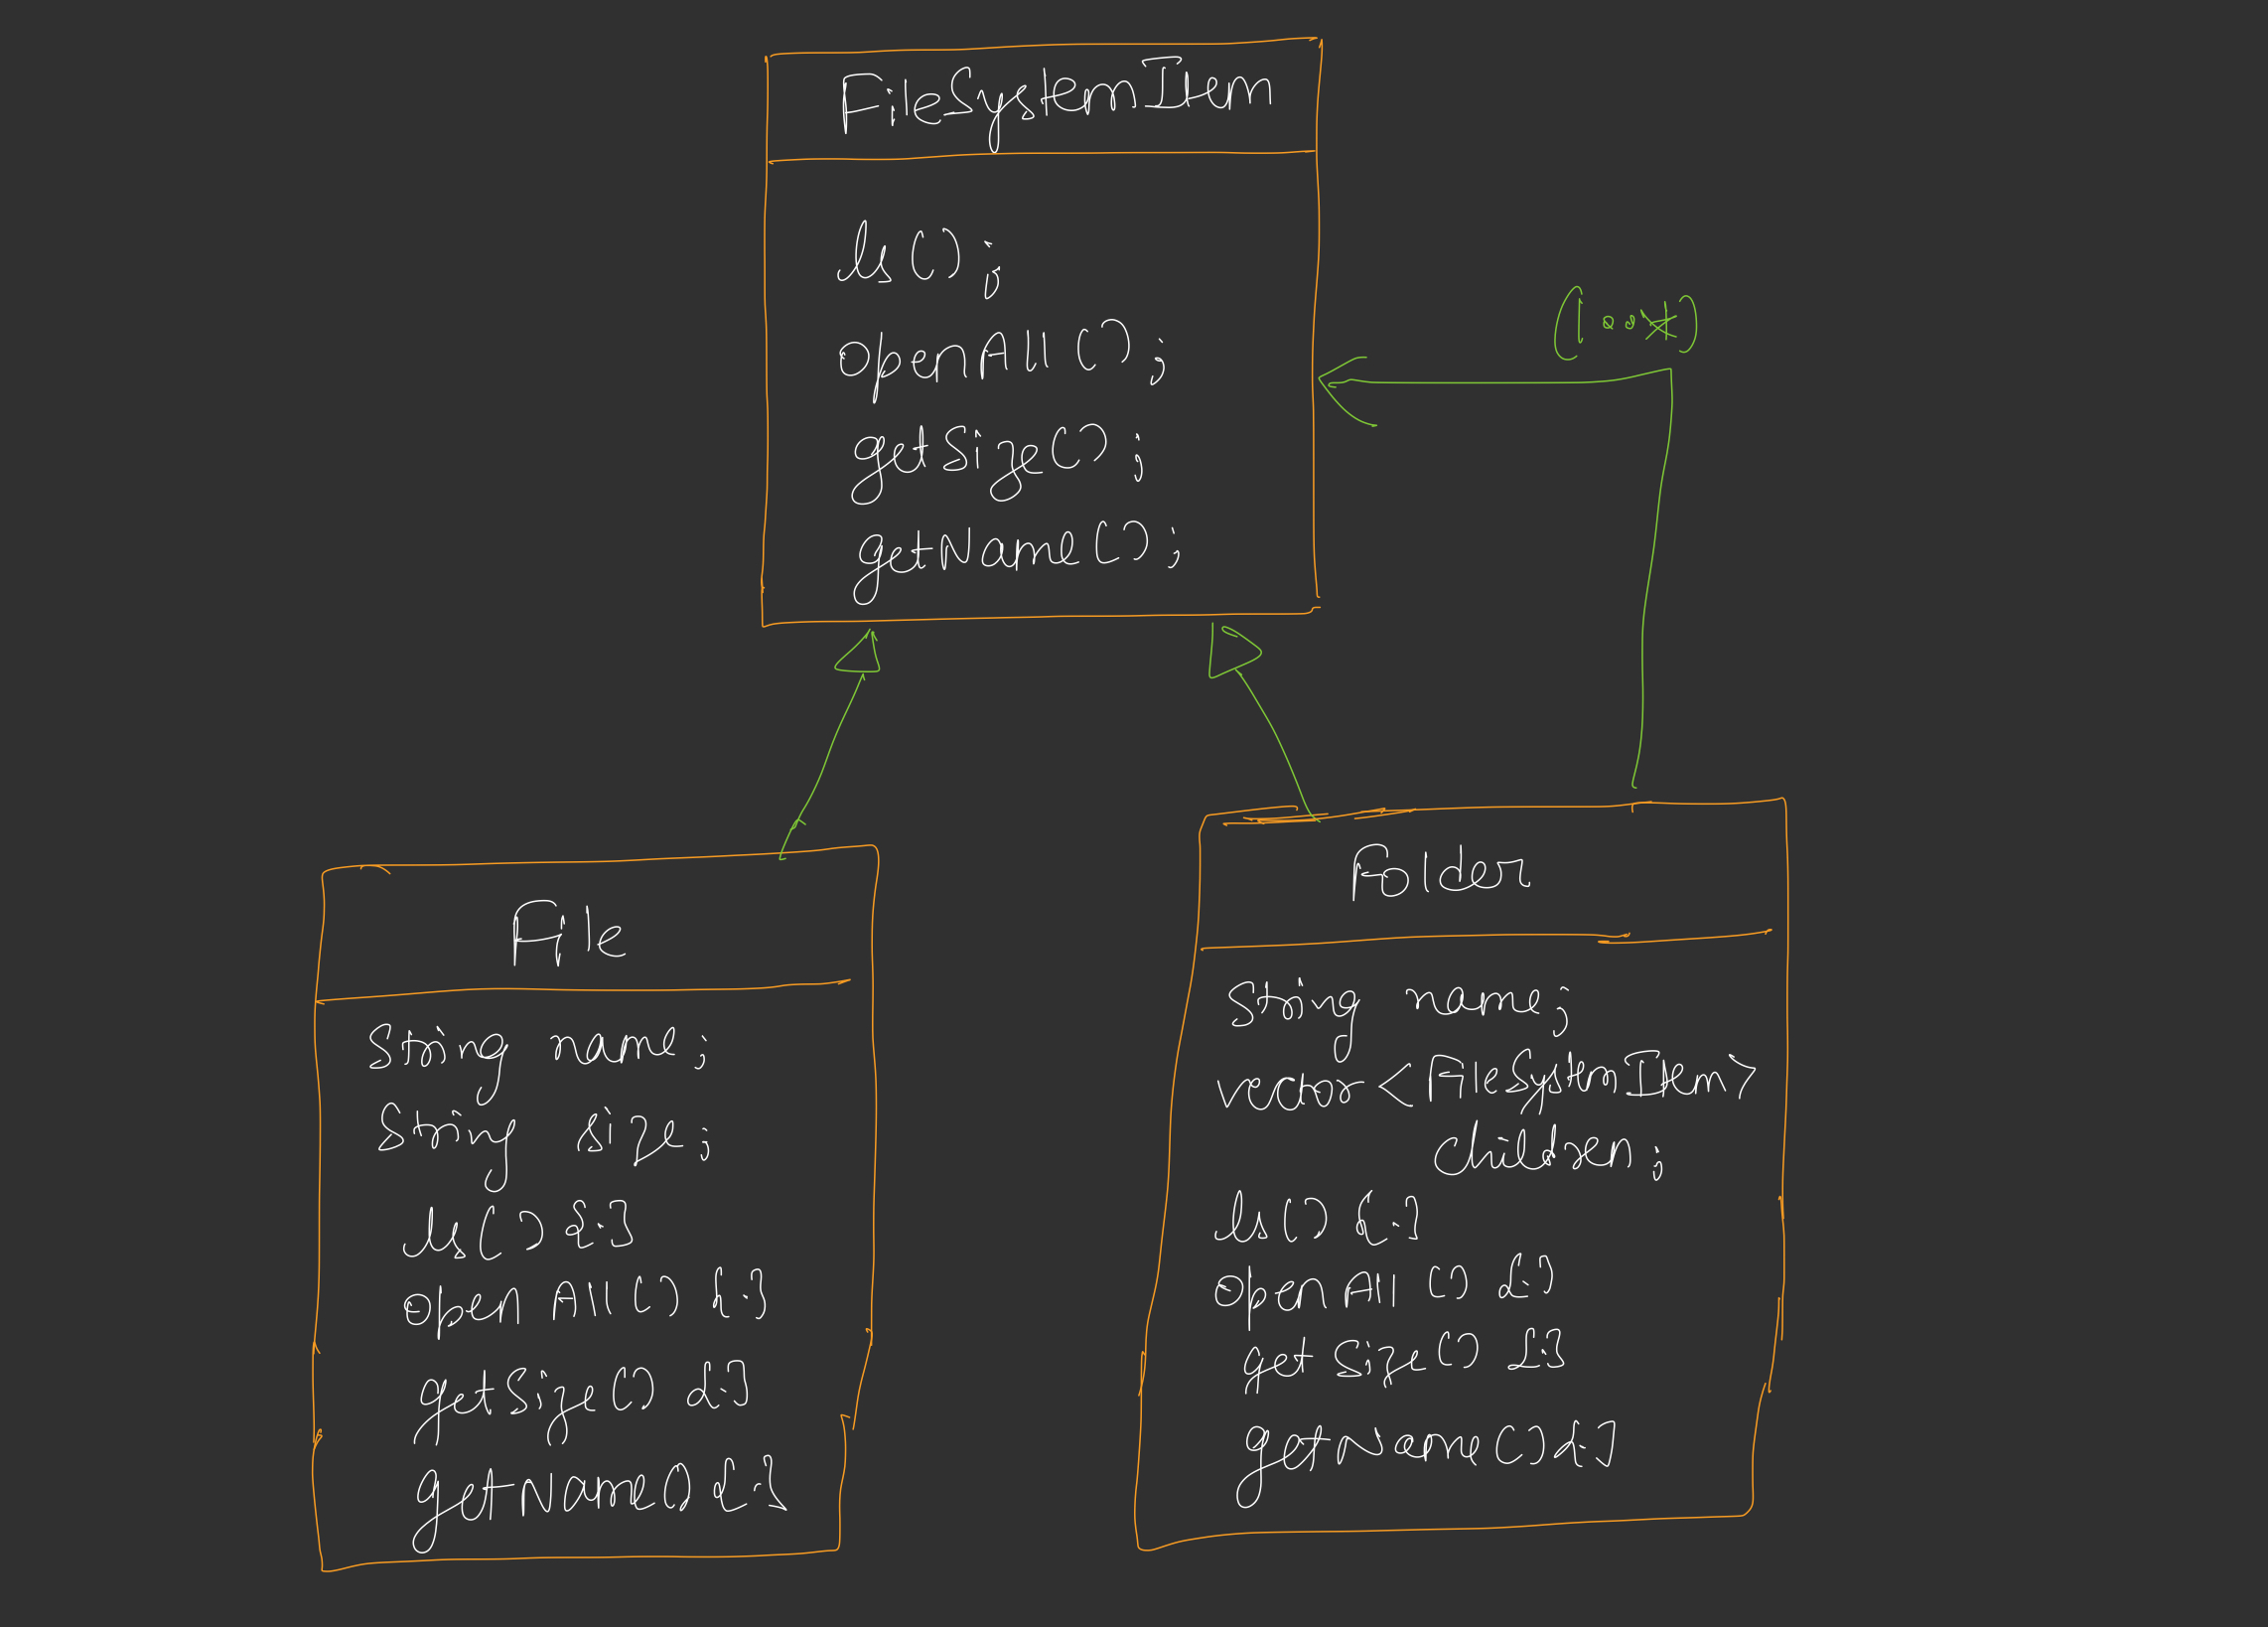 FileSystemItem
ls();
openAll();
getSize();
getName();
(1..*)
File
String name;
String size;
ls() {.}
openAll() {.}
getSize() {.}
getName() {.}
Folder
String name;
vector<FileSystemItem>
children;
ls() {.}
openAll() {.}
getSize() {.}
getName() {.}